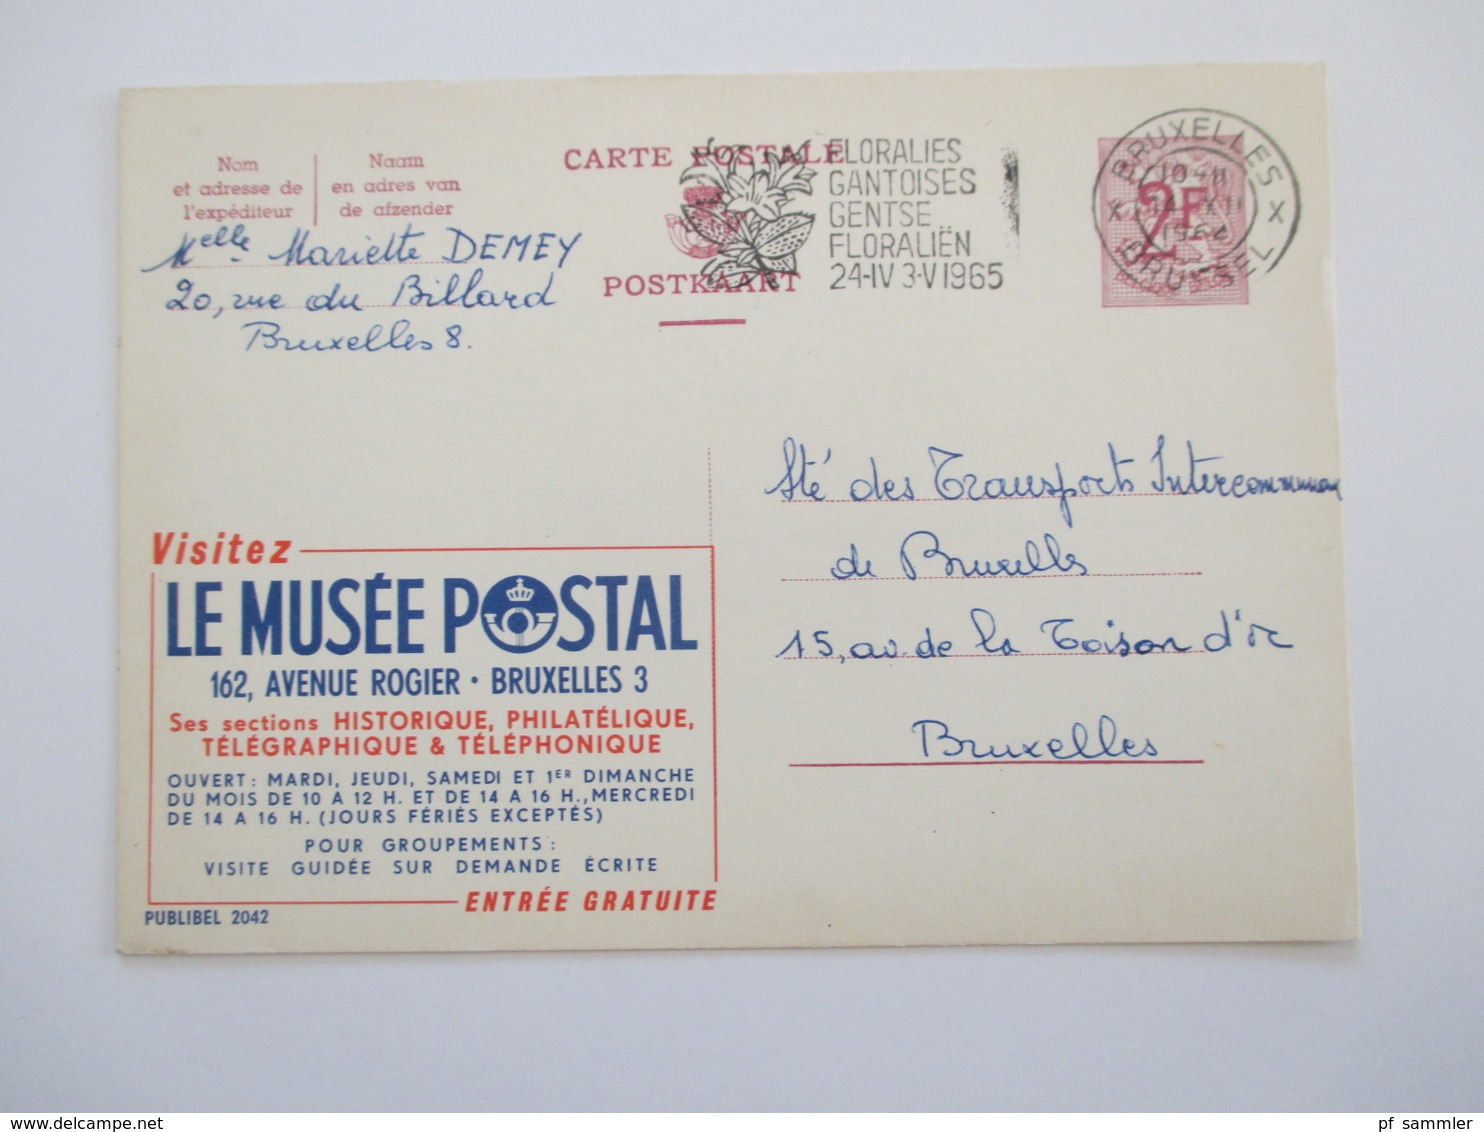 Nom
et adresse de
l'expéditeur
Naam
en adres van
de afzender
CARTE POSTALE
POSTKAART
FLORALIES
GANTOISES
GENTSE
FLORALIËN
24-IV 3-V 1965
BRUXELLES
X X
BRUSSEL
2F
Melle Mariette DEMEY
20, rue du Billard
Bruxelles 8.
Sté des Transports Intercommunaux
de Bruxelles
15, av. de la Toison d'or
Bruxelles
Visitez
LE MUSÉE POSTAL
162, AVENUE ROGIER • BRUXELLES 3
Ses sections HISTORIQUE, PHILATÉLIQUE,
TÉLÉGRAPHIQUE & TÉLÉPHONIQUE
OUVERT : MARDI, JEUDI, SAMEDI ET 1ER DIMANCHE
DU MOIS DE 10 A 12 H. ET DE 14 A 16 H., MERCREDI
DE 14 A 16 H. (JOURS FÉRIÉS EXCEPTÉS)
POUR GROUPEMENTS :
VISITE GUIDÉE SUR DEMANDE ÉCRITE
ENTRÉE GRATUITE
PUBLIBEL 2042
www.delcampe.net
pf_sammler